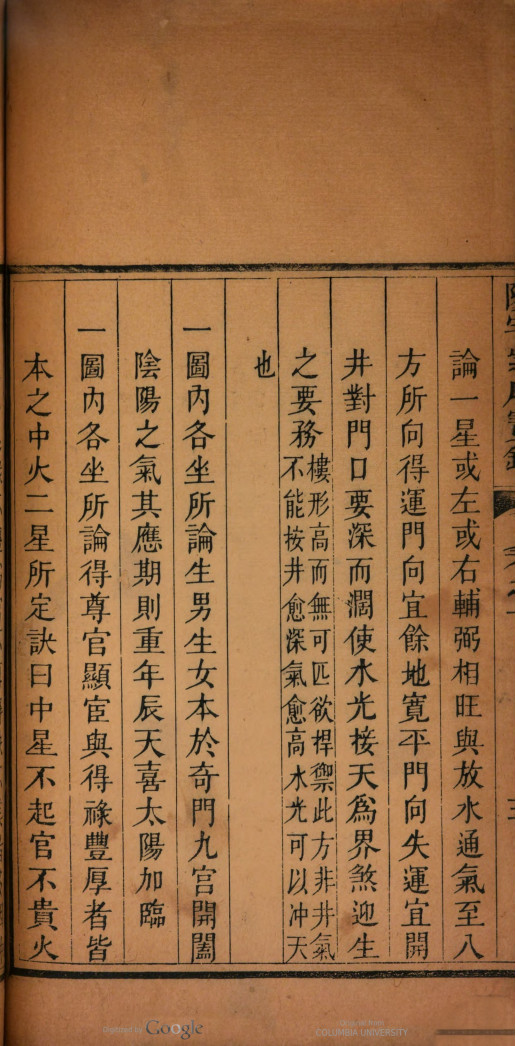 論一星或左或右輔弼相旺與放水通氣至八
方所向得運門向宜餘地寬平門向失運宜開
井對門口要深而濶使水光接天為界煞迎生
之要務樓形高而無可匹欲捍禦此方非井氣
不能按井愈深氣愈高水光可以冲天
也
一圖內各坐所論生男生女本於奇門九宮開闔
陰陽之氣其應期則重年辰天喜太陽加臨
一圖內各坐所論得尊官顯宦與得祿豐厚者皆
本之中火二星所定訣曰中星不起官不貴火
Digitized by Google
COLUMBIA UNIVERSITY